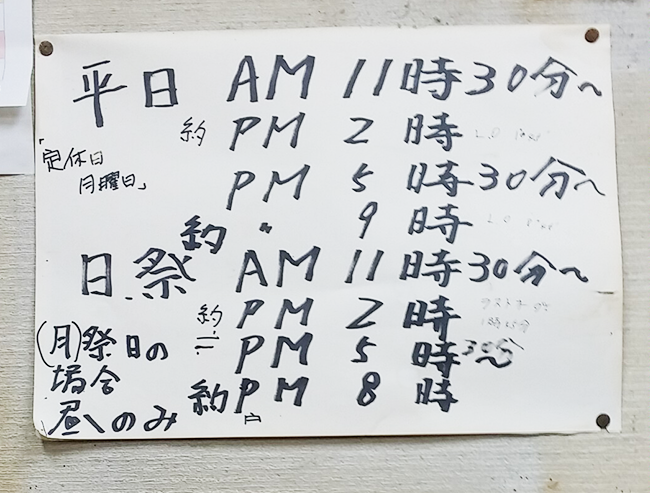 平日 AM 11時30分〜
約 PM 2時
「定休日
月曜日」
PM 5時30分〜
約 〃 9時
日.祭 AM 11時30分〜
約 PM 2時
PM 5時30分〜
(月)祭日の
場合
昼のみ
約 PM 8時